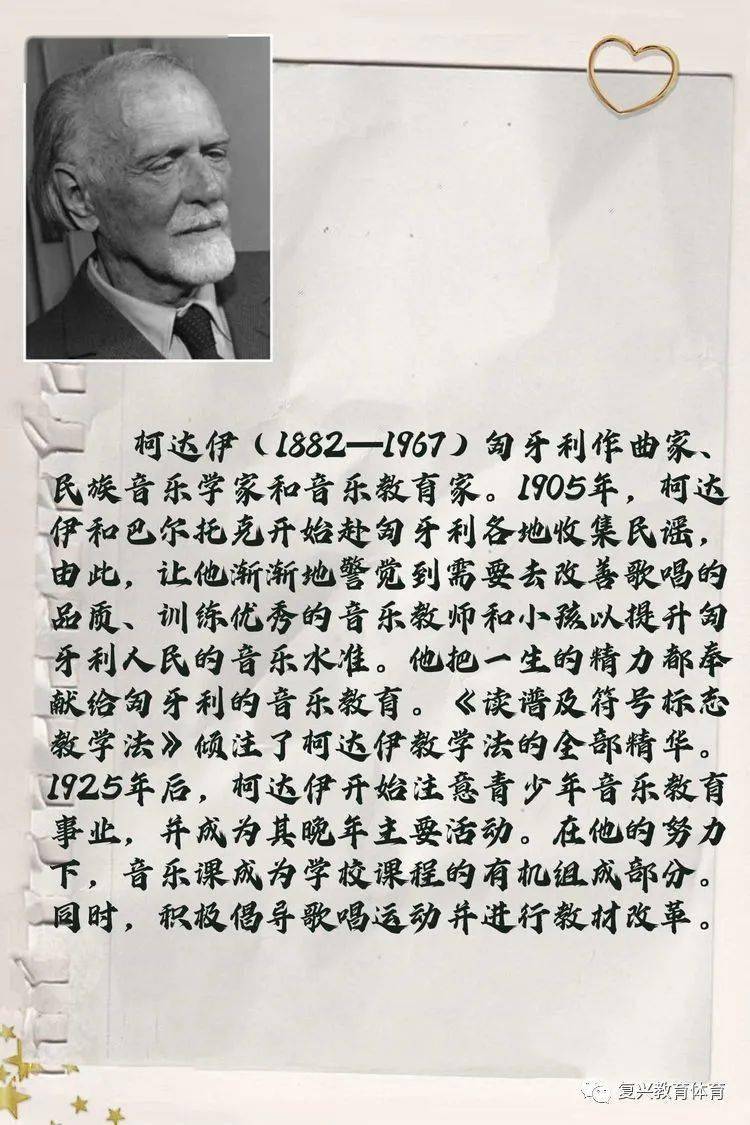 柯达伊（1882—1967）匈牙利作曲家、
民族音乐学家和音乐教育家。1905年，柯达
伊和巴尔托克开始赴匈牙利各地收集民谣，
由此，让他渐渐地警觉到需要去改善歌唱的
品质、训练优秀的音乐教师和小孩以提升匈
牙利人民的音乐水准。他把一生的精力都奉
献给匈牙利的音乐教育。《读谱及符号标志
教学法》倾注了柯达伊教学法的全部精华。
1925年后，柯达伊开始注意青少年音乐教育
事业，并成为其晚年主要活动。在他的努力
下，音乐课成为学校课程的有机组成部分。
同时，积极倡导歌唱运动并进行教材改革。
复兴教育体育